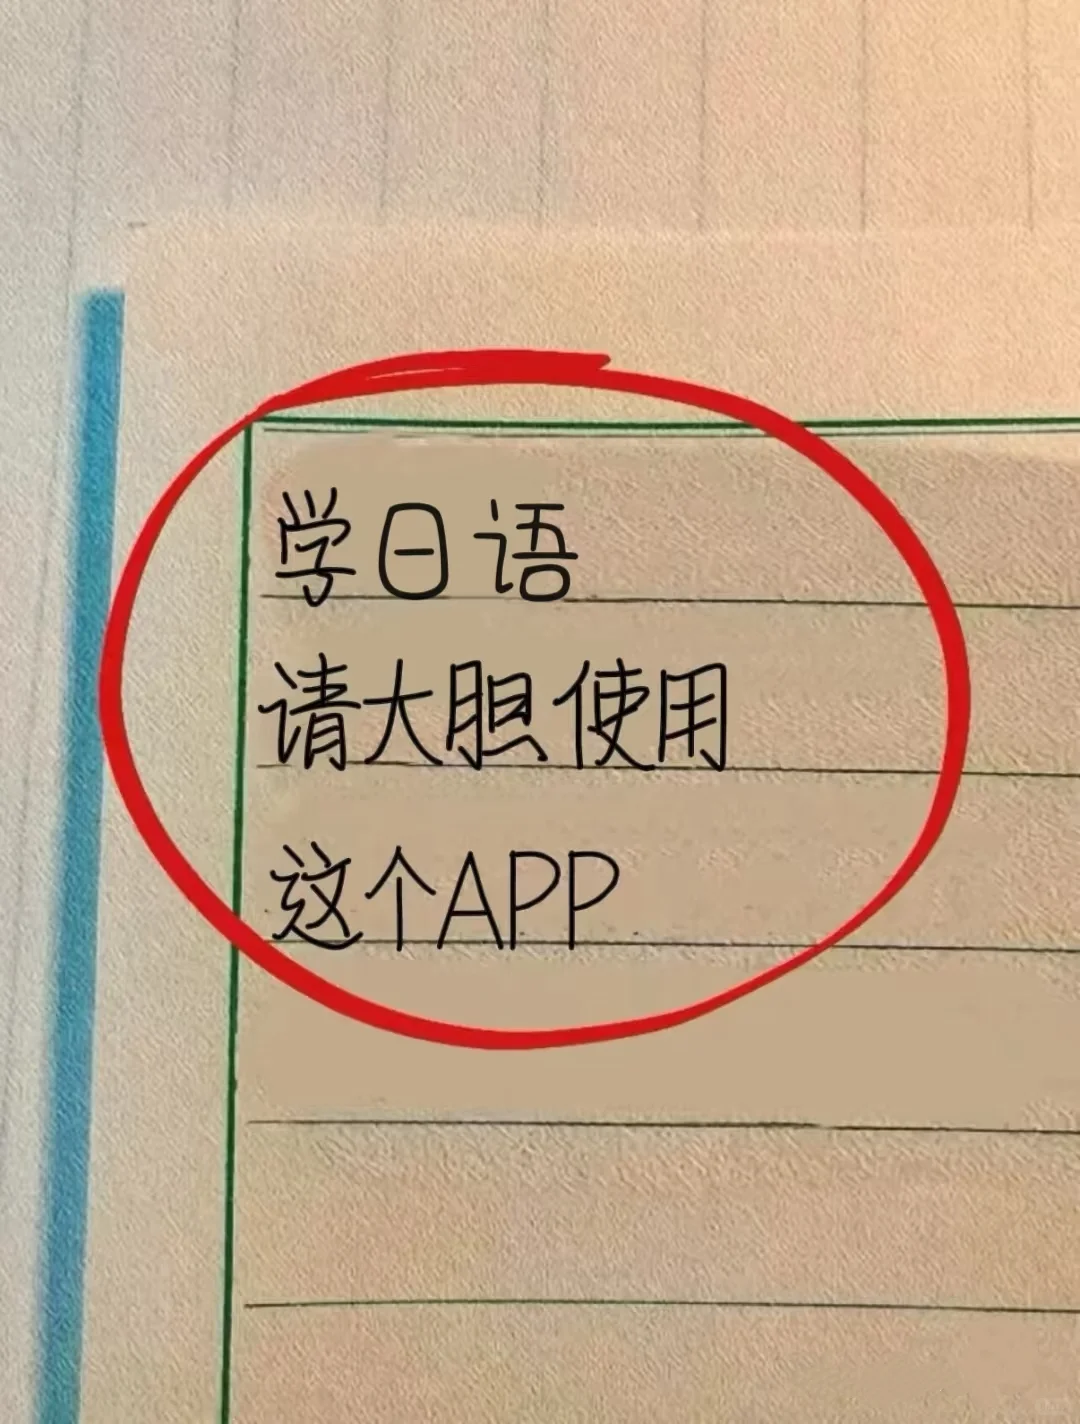 学日语
请大胆使用
这个APP